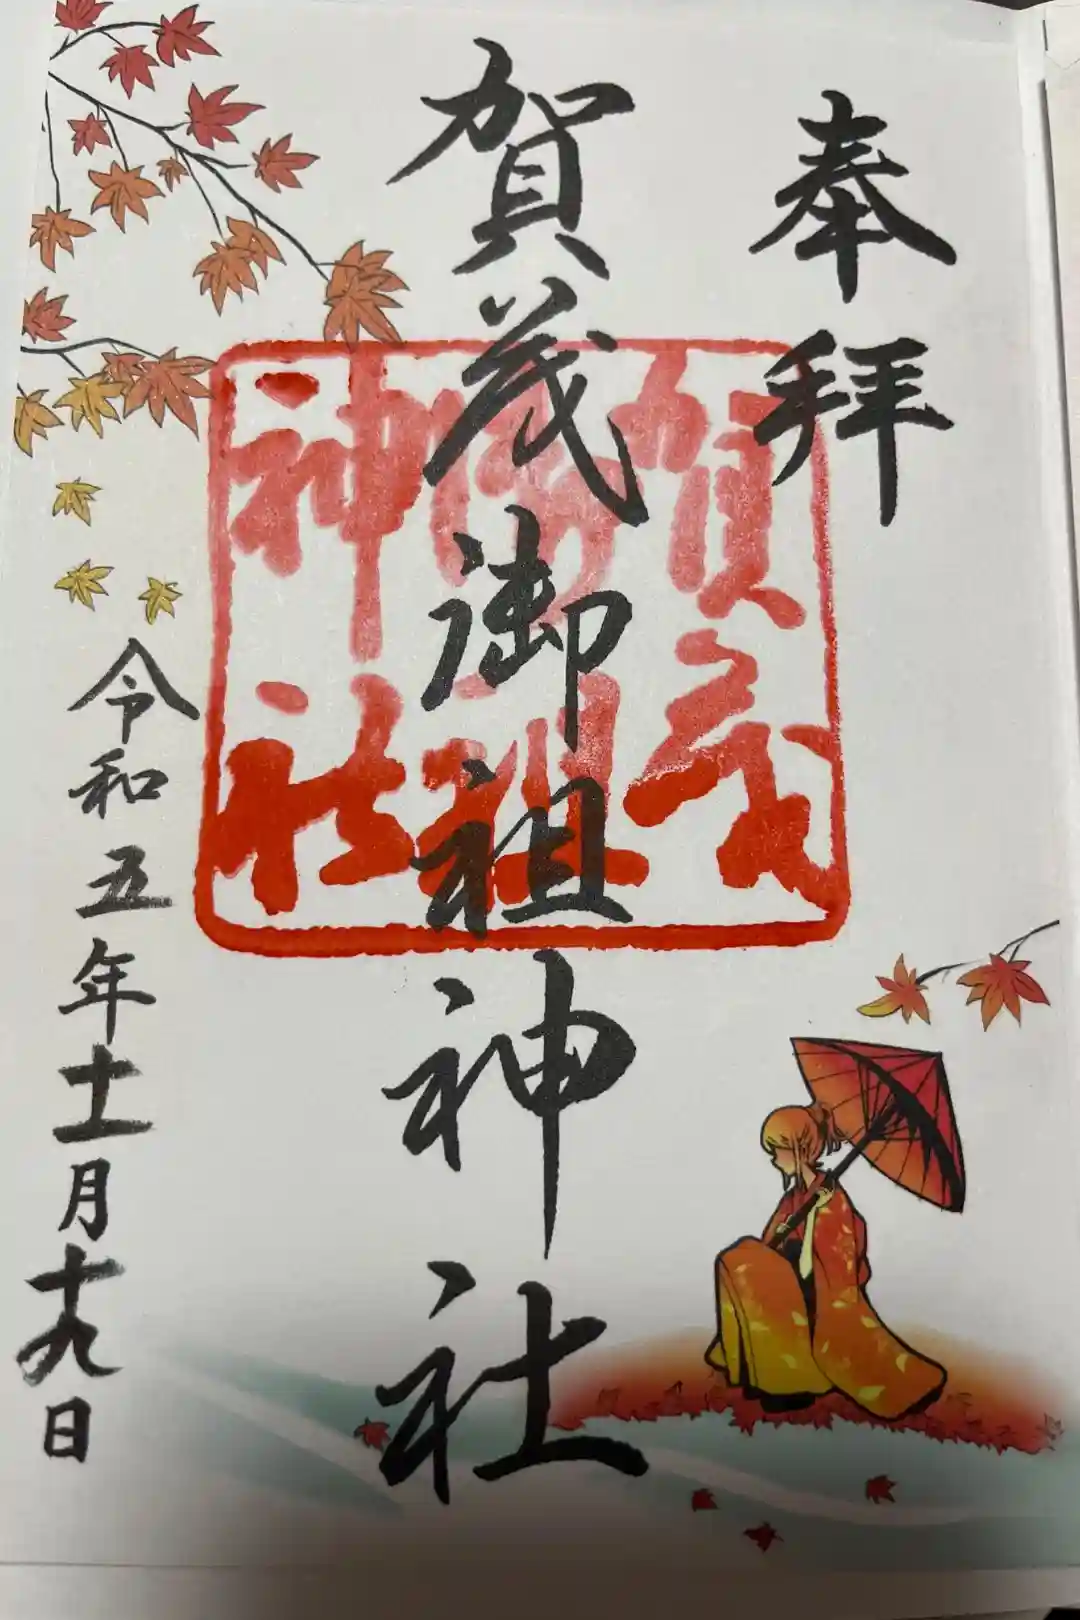 奉拝
賀茂御祖神社
賀茂
御祖
神社
令和五年十一月十九日